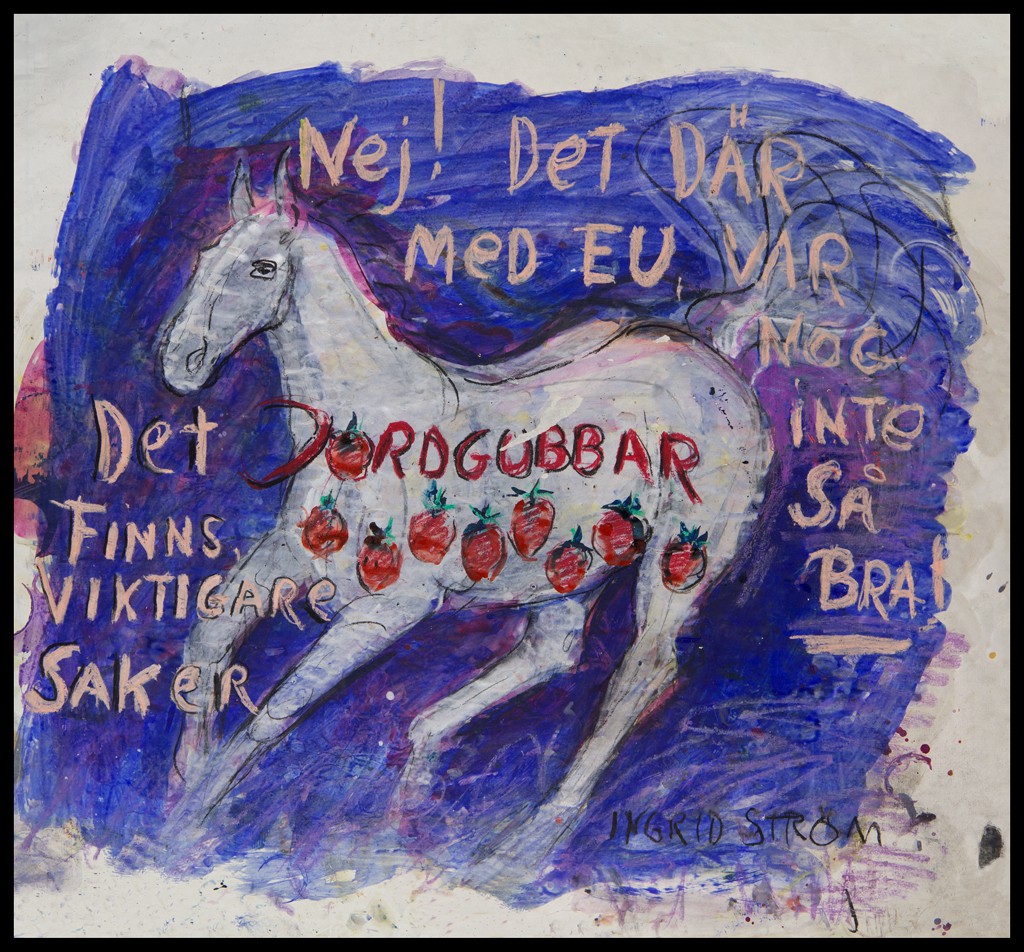 Nej! Det DÄR
MeD EU, VAR
NOG
iNTe
SÅ
BRA!
Det
FINNS,
VIKTIGARe
SAKeR
JORDGUBBAR
INGRID STRÖM